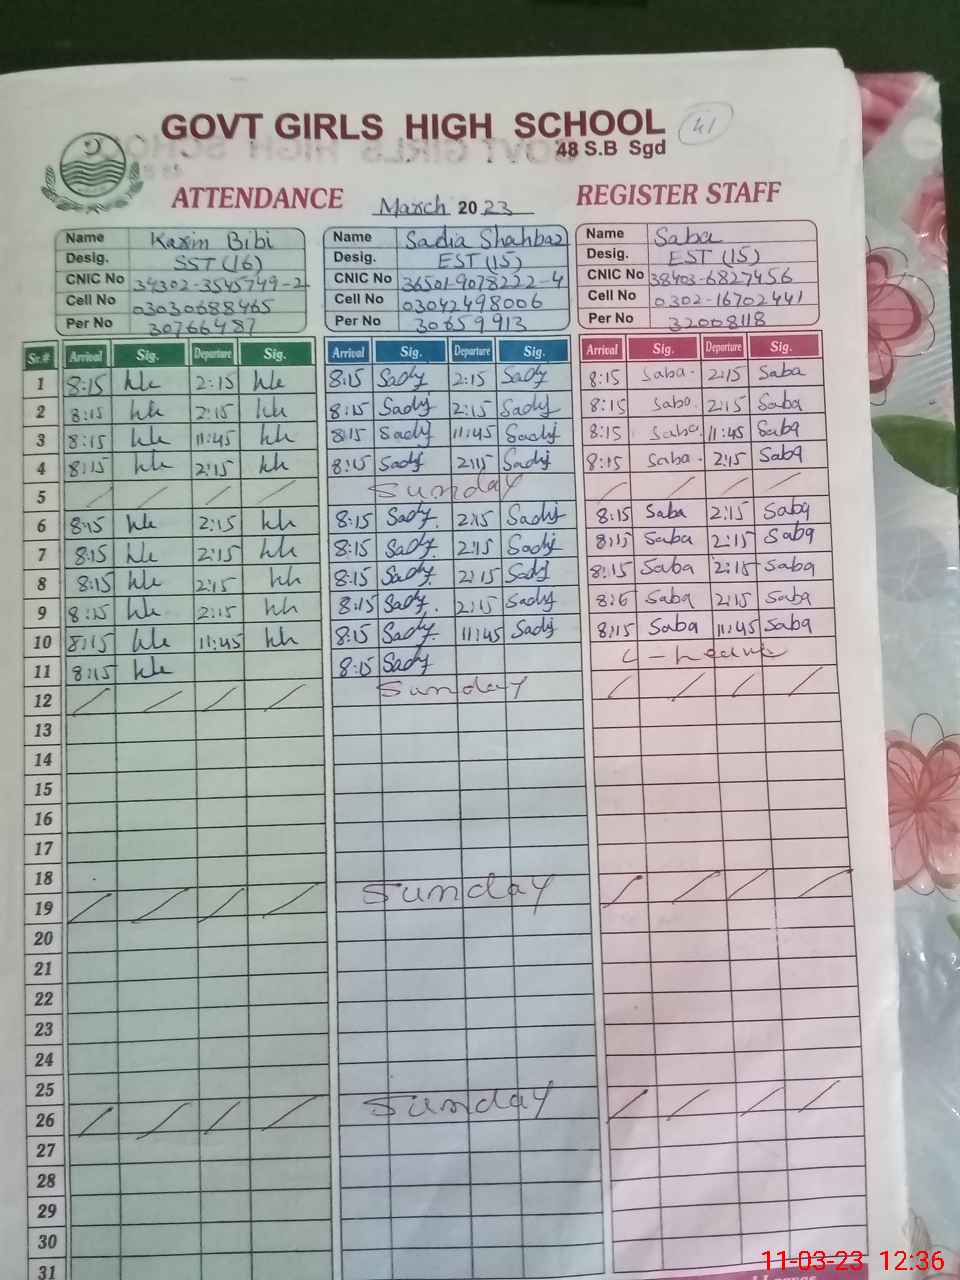 GOVT GIRLS HIGH SCHOOL 41
48 S.B Sgd
ATTENDANCE March 2023 REGISTER STAFF
Name Karim Bibi Name Sadia Shahbaz Name Saba
Desig. SST (16) Desig. EST (15) Desig. EST (15)
CNIC No 34302-3545749-2 CNIC No 36501-9078222-4 CNIC No 38403-6827456
Cell No 03030688465 Cell No 03042498006 Cell No 0302-16702441
Per No 30766487 Per No 30659913 Per No 32008118
Sr.# Arrival Sig. Departure Sig. Arrival Sig. Departure Sig. Arrival Sig. Departure Sig.
1 8:15 2:15 8:15 Sady 2:15 Sady 8:15 Saba 2:15 Saba
2 8:15 2:15 8:15 Sady 2:15 Sady 8:15 Saba 2:15 Saba
3 8:15 11:45 8:15 Sady 11:45 Sady 8:15 Saba 11:45 Saba
4 8:15 2:15 8:15 Sady 2:15 Sady 8:15 Saba 2:15 Saba
5 Sunday
6 8:15 2:15 8:15 Sady 2:15 Sady 8:15 Saba 2:15 Saba
7 8:15 2:15 8:15 Sady 2:15 Sady 8:15 Saba 2:15 Saba
8 8:15 2:15 8:15 Sady 2:15 Sady 8:15 Saba 2:15 Saba
9 8:15 2:15 8:15 Sady 2:15 Sady Saba 2:15 Saba
10 8:15 11:45 8:15 Sady 11:45 Sady 8:15 Saba 11:45 Saba
11 8:15 8:15 Sady C-Leave
12 Sunday
13
14
15
16
17
18
19 Sunday
20
21
22
23
24
25
26 Sunday
27
28
29
30
31
11-03-23 12:36